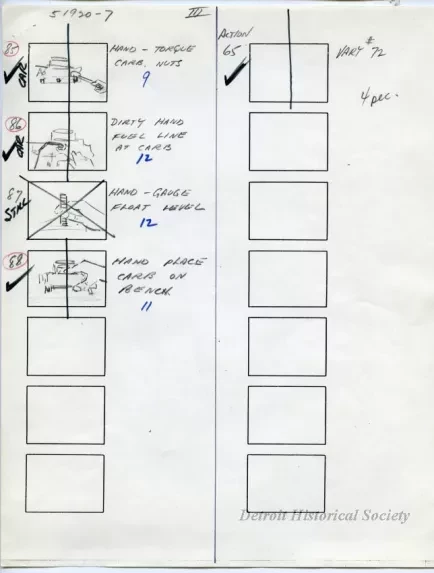 51920-7
III
85
CAR
HAND - TORQUE
CARB. NUTS
9
86
CAR
DIRTY HAND
FUEL LINE
AT CARB
12
87
STILL
HAND - GAUGE
FLOAT LEVEL
12
88
HAND PLACE
CARB ON
BENCH
11
ACTION
65
VARY #72
4 pec.
Detroit Historical Society